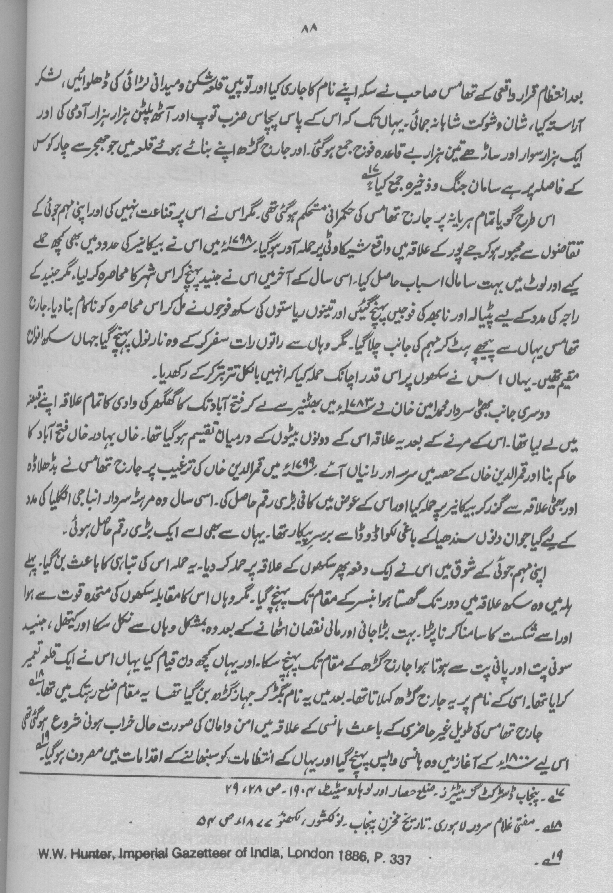 ۸۸
بعد انتظام قرار واقعی کے تھامس صاحب نے سکہ اپنے نام کا جاری کیا اور توپیں قلعہ شکن و میدانی لڑائی کی ڈھلوائیں، لشکر
آراستہ کیا، شان و شوکت شاہانہ جمائی۔ یہاں تک کہ اس کے پاس پچاس ضرب توپ اور آٹھ پلٹن ہزار ہزار آدمی کی اور
ایک ہزار سوار اور ساڑھے تین ہزار بے قاعدہ فوج جمع ہو گئی۔ اور جارج گڑھ اپنے بنائے ہوئے قلعہ میں جو جھجر سے چار کوس
کے فاصلہ پر ہے سامان جنگ و ذخیرہ جمع کیا۔ ۱۷؎
اس طرح گویا تمام ہریانہ پر جارج تھامس کی حکمرانی مستحکم ہو گئی تھی۔ مگر اس نے اس پر قناعت نہیں کی اور اپنی مہم جوئی کے
تقاضوں سے مجبور ہو کر جے پور کے علاقہ میں واقع شیکاوٹی پر حملہ آور ہو گیا۔ ۱۷۹۸ء میں اس نے بیکانیر کی حدود میں بھی کچھ حملے
کیے اور لوٹ میں بہت سا مال اسباب حاصل کیا۔ اسی سال کے آخر میں اس نے جنید پہنچ کر اس شہر کا محاصرہ کر لیا۔ مگر جنید کے
راجہ کی مدد کے لیے پٹیالہ اور نابھہ کی فوجیں پہنچ گئیں اور تینوں ریاستوں کی سکھ فوجوں نے مل کر اس محاصرہ کو ناکام بنا دیا۔ جارج
تھامس یہاں سے پیچھے ہٹ کر مہم کی جانب چلا گیا۔ مگر وہاں سے راتوں رات سفر کر کے وہ نارنول پہنچ گیا جہاں سکھ افواج
مقیم تھیں۔ یہاں اس نے سکھوں پر اس قدر اچانک حملہ کیا کہ انہیں بالکل تتر بتر کر کے رکھ دیا۔
دوسری جانب بھٹی سردار محمد امین خان نے ۱۷۸۳ء میں بھٹنیر سے لے کر فتح آباد تک کا گھگھر کی وادی کا تمام علاقہ اپنے قبضہ
میں لے لیا تھا۔ اس کے مرنے کے بعد یہ علاقہ اس کے دونوں بیٹوں کے درمیان تقسیم ہو گیا تھا۔ خاں بہادر خاں فتح آباد کا
حاکم بنا اور قمرالدین خاں کے حصہ میں سرسہ اور رانیاں آئے۔ ۱۷۹۹ء میں قمرالدین خاں کی ترغیب پر جارج تھامس نے بڈھلاڈہ
اور بھٹی علاقہ سے گزر کر بیکانیر پر حملہ کیا اور اس کے عوض میں کافی بڑی رقم حاصل کی۔ اسی سال وہ مرہٹہ سردار انباجی انگلیا کی مدد
کے لیے گیا جو ان دنوں سندھیا کے باغی لکوا ڈوڈا سے برسرِ پیکار تھا۔ یہاں سے بھی اسے ایک بڑی رقم حاصل ہوئی۔
اپنی مہم جوئی کے شوق میں اس نے ایک دفعہ پھر سکھوں کے علاقہ پر حملہ کر دیا۔ یہ حملہ اس کی تباہی کا باعث بن گیا۔ پہلے
ہلہ میں وہ سکھ علاقہ میں دور تک گھستا ہوا بنسر کے مقام تک پہنچ گیا۔ مگر وہاں اس کا مقابلہ سکھوں کی متحدہ قوت سے ہوا
اور اسے شکست کا سامنا کرنا پڑا۔ بہت بڑا جانی اور مالی نقصان اٹھانے کے بعد وہ بمشکل وہاں سے نکل سکا اور کیتھل، جنید
سونی پت اور پانی پت سے ہوتا ہوا جارج گڑھ کے مقام تک پہنچ سکا۔ اور یہاں کچھ دن قیام کیا یہاں اس نے ایک قلعہ تعمیر
کرایا تھا۔ اسی کے نام پر یہ جارج گڑھ کہلاتا تھا۔ بعد میں یہ نام بگڑ کر جہاز گڑھ بن گیا تھا یہ مقام ضلع رہتک میں تھا۔ ۱۸؎
جارج تھامس کی طویل غیر حاضری کے باعث ہانسی کے علاقہ میں امن و امان کی صورت حال خراب ہونی شروع ہو گئی تھی
اس لیے ۱۸۰۰ء کے آغاز میں وہ ہانسی واپس پہنچ گیا اور یہاں کے انتظامات کو سنبھالنے کے اقدامات میں مصروف ہو گیا۔ ۱۹؎
۱۷؎۔ پنجاب ڈسٹرکٹ گزیٹیرز۔ ضلع حصار اور لوہارو سٹیٹ، ۱۹۰۴۔ ص ۲۸، ۲۹
۱۸؎۔ مفتی غلام سرور لاہوری۔ تاریخ مخزن پنجاب۔ نولکشور، لکھنؤ ۱۸۷۷ء ص ۵۴
۱۹؎۔ W.W. Hunter, Imperial Gazetteer of India, London 1886, P. 337